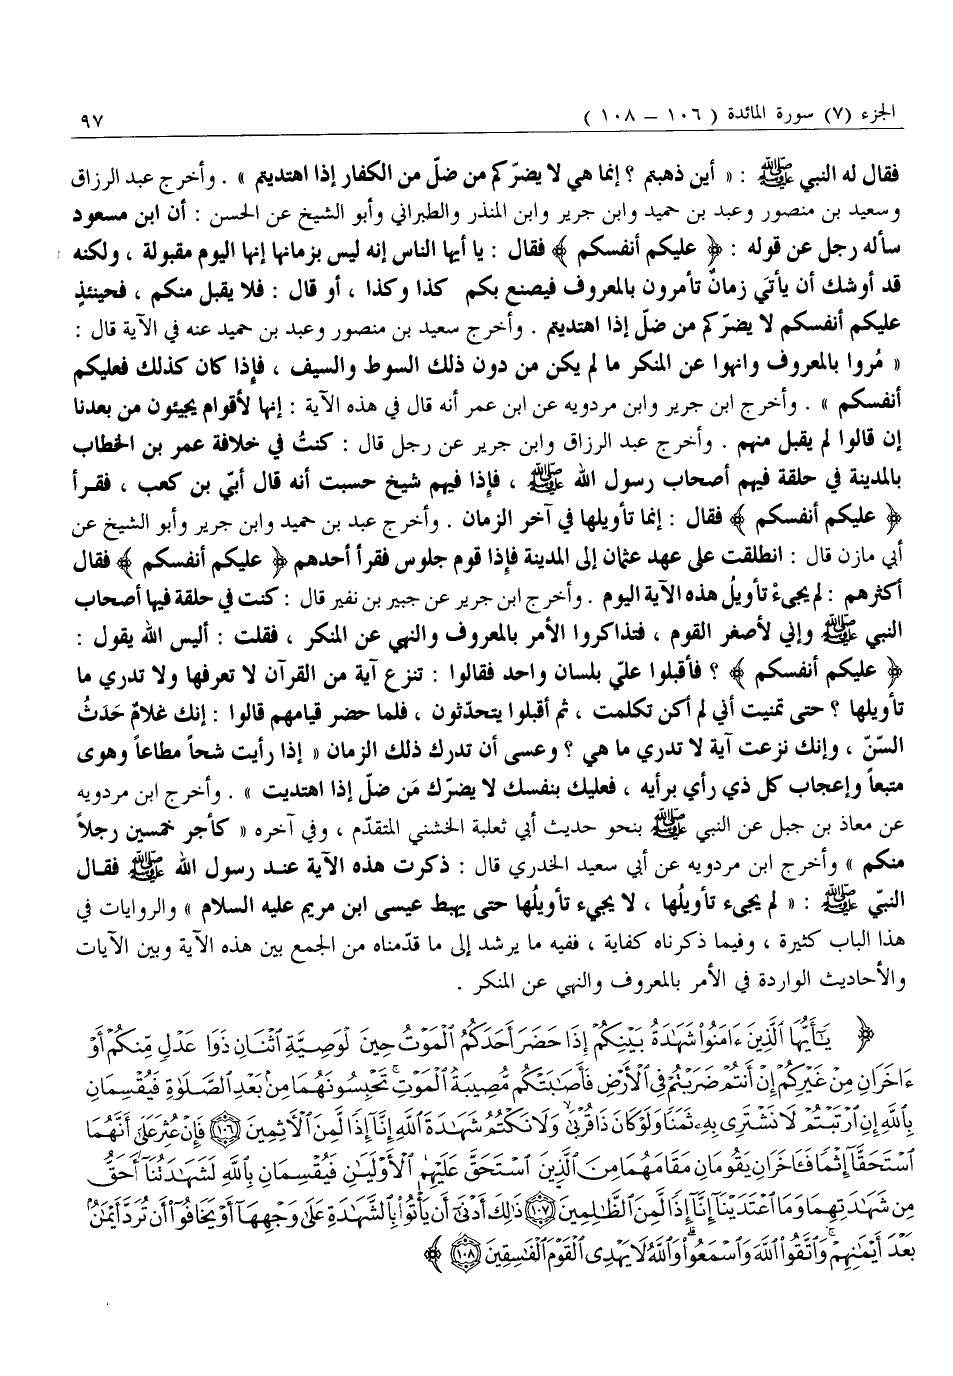 الجزء (٧) سورة المائدة ( ١٠٦ – ١٠٨ ) ٩٧
فقال له النبي ﷺ : « أين ذهبتم ؟ إنما هي لا يضرّكم من ضلّ من الكفار إذا اهتديتم » . وأخرج عبد الرزاق
وسعيد بن منصور وعبد بن حميد وابن جرير وابن المنذر والطبراني وأبو الشيخ عن الحسن : أن ابن مسعود
سأله رجل عن قوله : ﴿ عليكم أنفسكم ﴾ فقال : يا أيها الناس إنه ليس بزمانها إنها اليوم مقبولة ، ولكنه
قد أوشك أن يأتيَ زمانٌ تأمرون بالمعروف فيصنع بكم كذا وكذا ، أو قال : فلا يقبل منكم ، فحينئذٍ
عليكم أنفسكم لا يضرّكم من ضلّ إذا اهتديتم . وأخرج سعيد بن منصور وعبد بن حميد عنه في الآية قال :
« مُروا بالمعروف وانهوا عن المنكر ما لم يكن من دون ذلك السوط والسيف ، فإذا كان كذلك فعليكم
أنفسكم » . وأخرج ابن جرير وابن مردويه عن ابن عمر أنه قال في هذه الآية : إنها لأقوام يجيئون من بعدنا
إن قالوا لم يقبل منهم . وأخرج عبد الرزاق وابن جرير عن رجل قال : كنتُ في خلافة عمر بن الخطاب
بالمدينة في حلقة فيهم أصحاب رسول الله ﷺ ، فإذا فيهم شيخ حسبت أنه قال أبيّ بن كعب ، فقرأ
﴿ عليكم أنفسكم ﴾ فقال : إنما تأويلها في آخر الزمان . وأخرج عبد بن حميد وابن جرير وأبو الشيخ عن
أبي مازن قال : انطلقت على عهد عثمان إلى المدينة فإذا قوم جلوس فقرأ أحدهم ﴿ عليكم أنفسكم ﴾ فقال
أكثرهم : لم يجىءْ تأويلُ هذه الآية اليوم . وأخرج ابن جرير عن جبير بن نفير قال : كنت في حلقة فيها أصحاب
النبي ﷺ وإني لأصغر القوم ، فتذاكروا الأمر بالمعروف والنهي عن المنكر ، فقلت : أليس الله يقول :
﴿ عليكم أنفسكم ﴾ ؟ فأقبلوا عليّ بلسان واحد فقالوا : تنزع آية من القرآن لا تعرفها ولا تدري ما
تأويلها ؟ حتى تمنيت أني لم أكن تكلمت ، ثم أقبلوا يتحدّثون ، فلما حضر قيامهم قالوا : إنك غلامٌ حَدَثُ
السّنّ ، وإنك نزعت آية لا تدري ما هي ؟ وعسى أن تدرك ذلك الزمان « إذا رأيت شحاً مطاعاً وهوى
متبعاً وإعجاب كل ذي رأي برأيه ، فعليك بنفسك لا يضرّك مَن ضلّ إذا اهتديت » . وأخرج ابن مردويه
عن معاذ بن جبل عن النبي ﷺ بنحو حديث أبي ثعلبة الخشني المتقدّم ، وفي آخره « كأجر خمسين رجلاً
منكم » وأخرج ابن مردويه عن أبي سعيد الخدري قال : ذكرت هذه الآية عند رسول الله ﷺ فقال
النبّي ﷺ : « لم يجىء تأويلُها ، لا يجيء تأويلُها حتى يهبط عيسى ابن مريم عليه السلام » والروايات في
هذا الباب كثيرة ، وفيما ذكرناه كفاية ، ففيه ما يرشد إلى ما قدّمناه من الجمع بين هذه الآية وبين الآيات
والأحاديث الواردة في الأمر بالمعروف والنهي عن المنكر .
﴿ يَٰٓأَيُّهَا الَّذِينَ ءَامَنُوا شَهَٰدَةُ بَيْنِكُمْ إِذَا حَضَرَ أَحَدَكُمُ الْمَوْتُ حِينَ الْوَصِيَّةِ اثْنَانِ ذَوَا عَدْلٍ مِّنكُمْ أَوْ
ءَاخَرَانِ مِنْ غَيْرِكُمْ إِنْ أَنتُمْ ضَرَبْتُمْ فِي الْأَرْضِ فَأَصَٰبَتْكُم مُّصِيبَةُ الْمَوْتِ تَحْبِسُونَهُمَا مِنۢ بَعْدِ الصَّلَوٰةِ فَيُقْسِمَانِ
بِاللَّهِ إِنِ ارْتَبْتُمْ لَا نَشْتَرِي بِهِۦ ثَمَنًا وَلَوْ كَانَ ذَا قُرْبَىٰ وَلَا نَكْتُمُ شَهَٰدَةَ اللَّهِ إِنَّآ إِذًا لَّمِنَ الْأَثِمِينَ ۝١٠٦ فَإِنْ عُثِرَ عَلَىٰٓ أَنَّهُمَا
اسْتَحَقَّآ إِثْمًا فَـَٔاخَرَانِ يَقُومَانِ مَقَامَهُمَا مِنَ الَّذِينَ اسْتَحَقَّ عَلَيْهِمُ الْأَوْلَيَٰنِ فَيُقْسِمَانِ بِاللَّهِ لَشَهَٰدَتُنَآ أَحَقُّ
مِن شَهَٰدَتِهِمَا وَمَا اعْتَدَيْنَآ إِنَّآ إِذًا لَّمِنَ الظَّٰلِمِينَ ۝١٠٧ ذَٰلِكَ أَدْنَىٰٓ أَن يَأْتُوا بِالشَّهَٰدَةِ عَلَىٰ وَجْهِهَآ أَوْ يَخَافُوٓا أَن تُرَدَّ أَيْمَٰنُۢ
بَعْدَ أَيْمَٰنِهِمْ وَاتَّقُوا اللَّهَ وَاسْمَعُوا وَاللَّهُ لَا يَهْدِي الْقَوْمَ الْفَٰسِقِينَ ۝١٠٨ ﴾